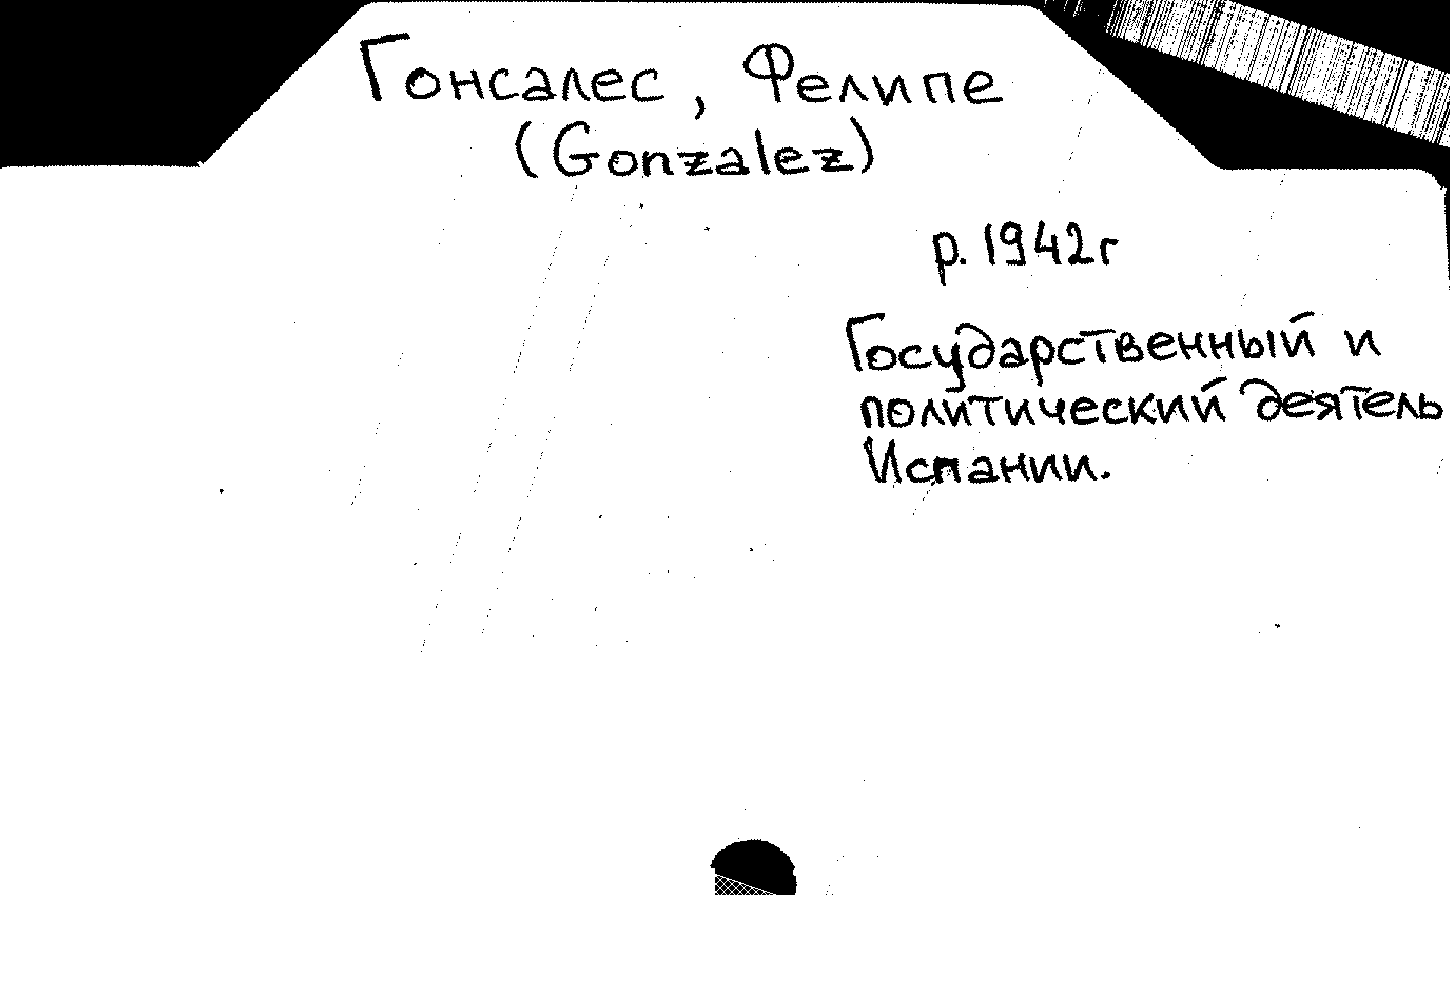 Гонсалес, Фелипе
(Gonzalez)
р. 1942г
Государственный и
политический деятель
Испании.